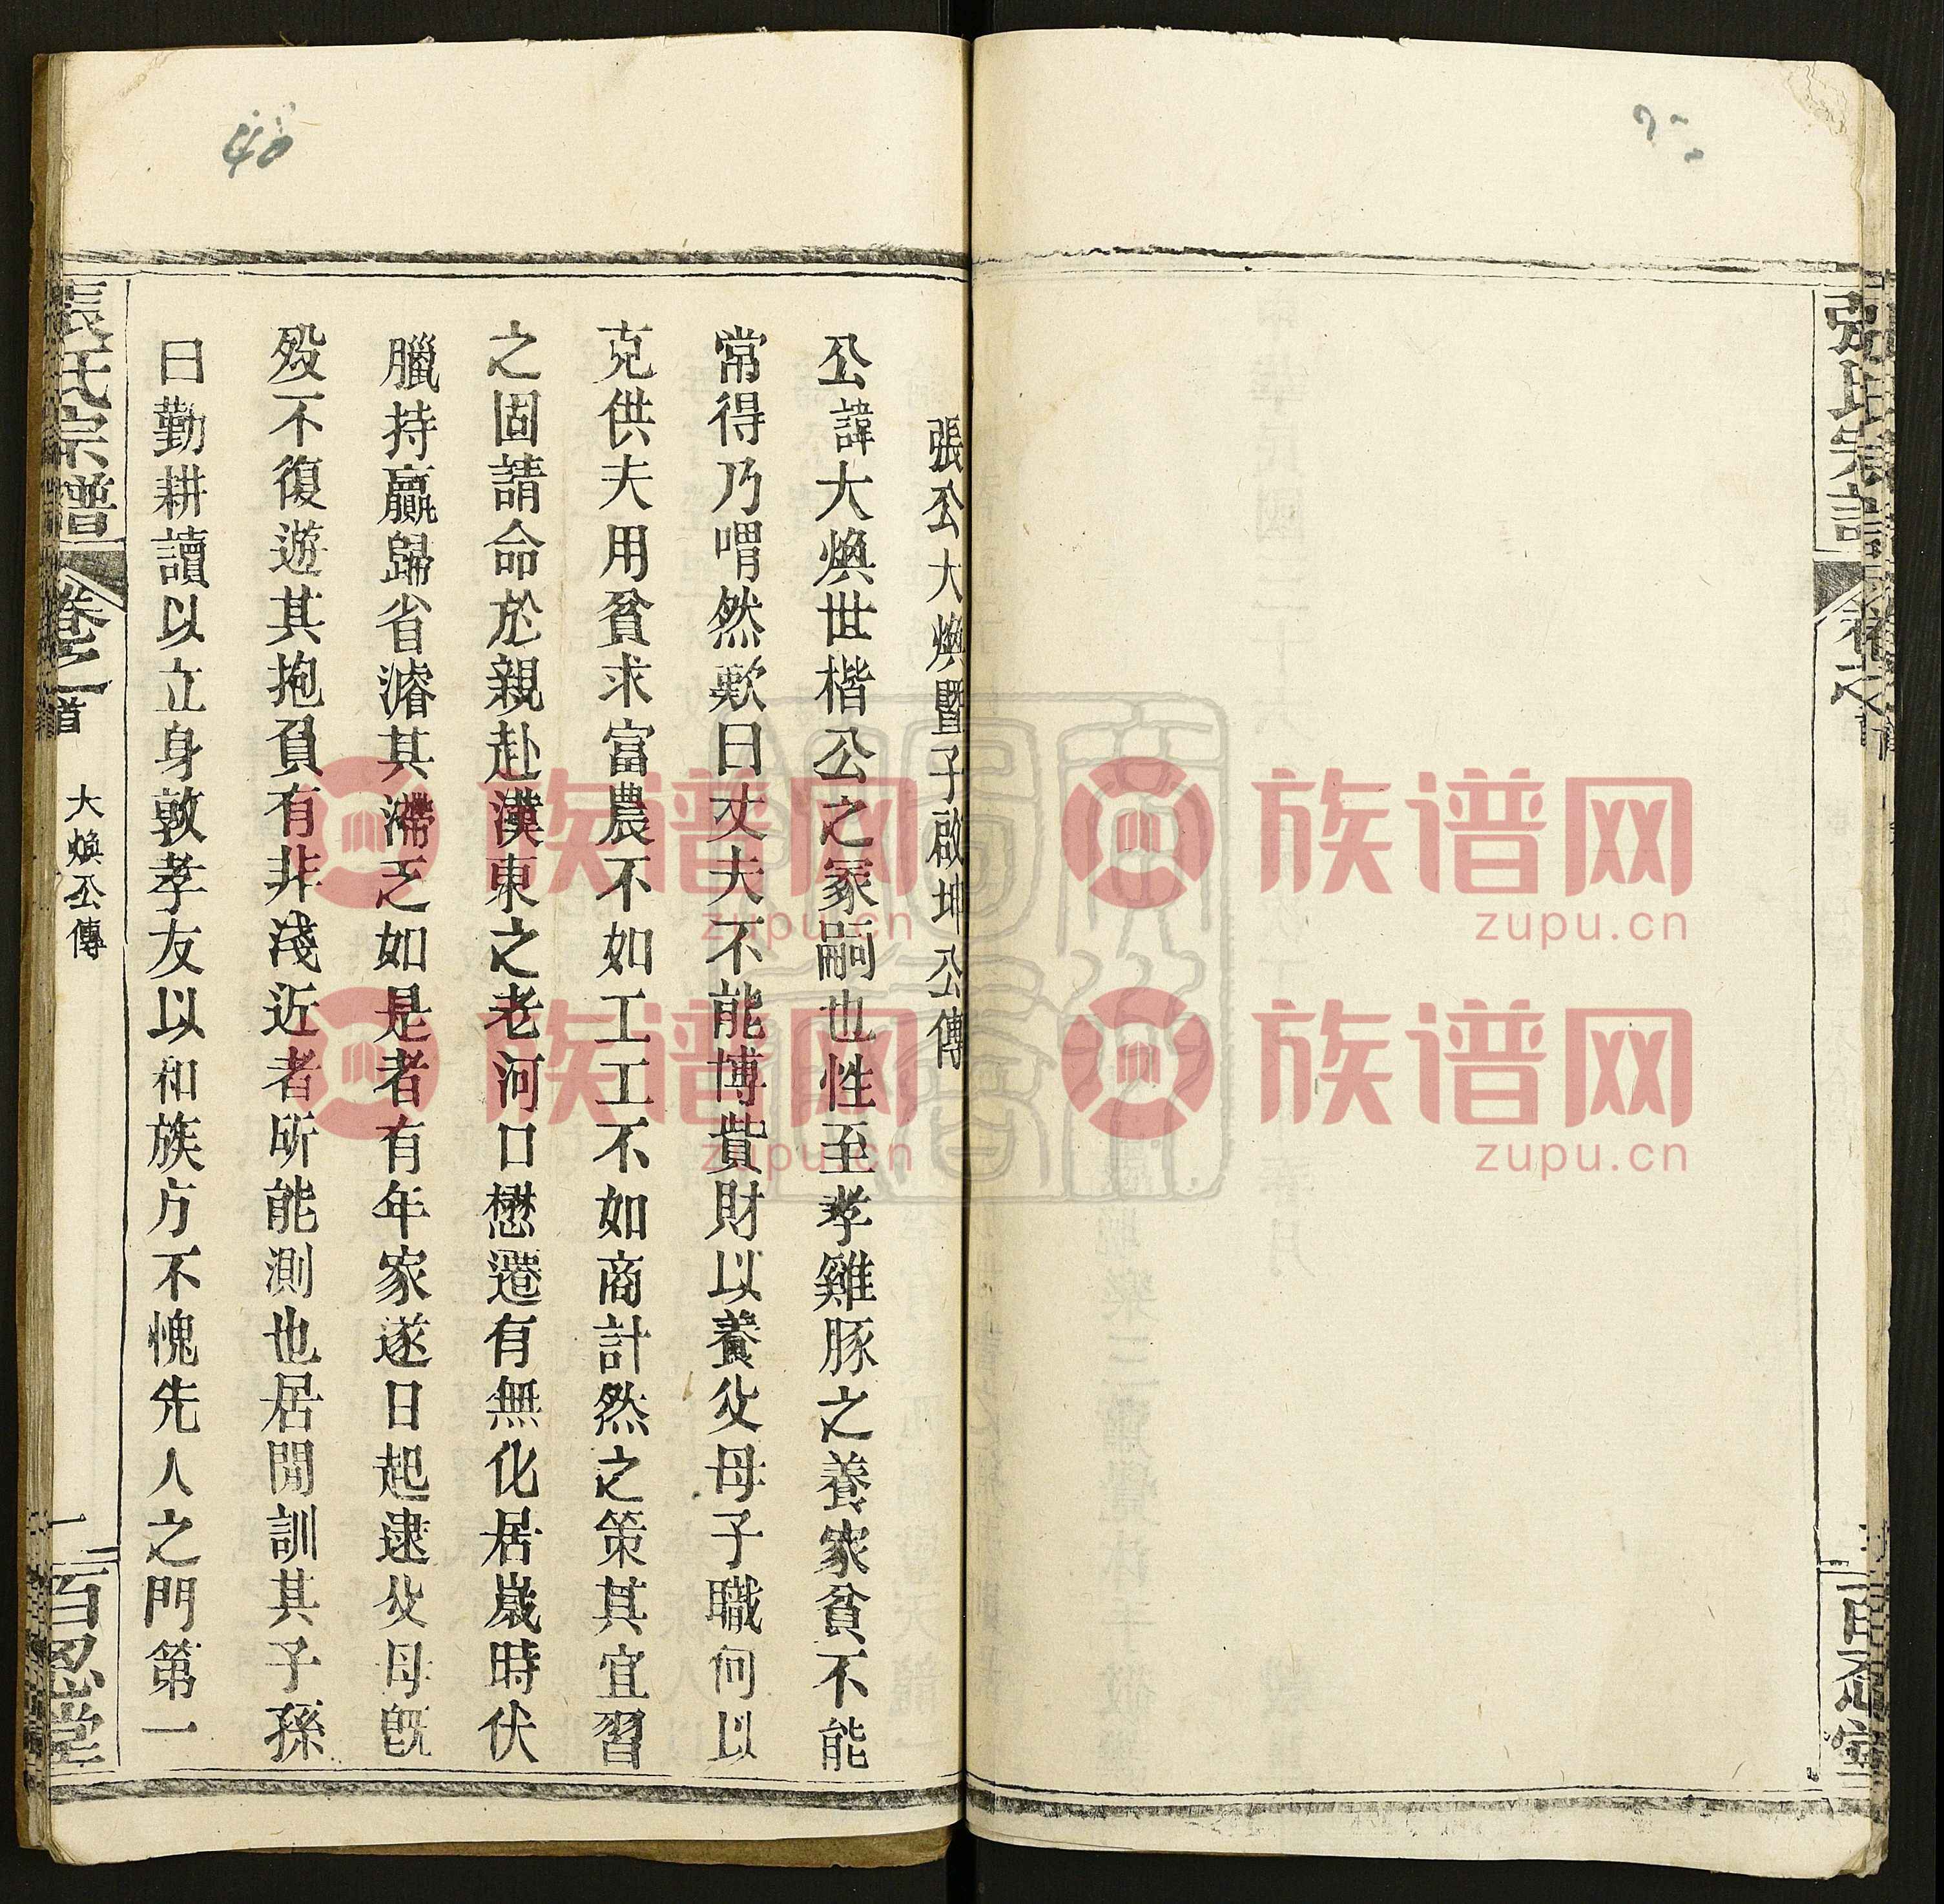 張氏宗譜
卷之首
百忍堂
張公大煥暨子啟坤公傳
公諱大煥世楷公之冢嗣也性至孝雞豚之養家貧不能
常得乃喟然歎曰丈夫不能博貲財以養父母子職何以
克供夫用貧求富農不如工工不如商計然之策其宜習
之固請命於親赴漢東之老河口懋遷有無化居歲時伏
臘持贏歸省濬其滯乏如是者有年家遂日起逮父母旣
歿不復遊其抱負有非淺近者所能測也居閒訓其子孫
曰勤耕讀以立身敦孝友以和族方不愧先人之門第一
張氏宗譜
卷之首
大煥公傳
一
百忍堂
40
族谱网
zupu.cn
族谱网
zupu.cn
族谱网
zupu.cn
族谱网
zupu.cn